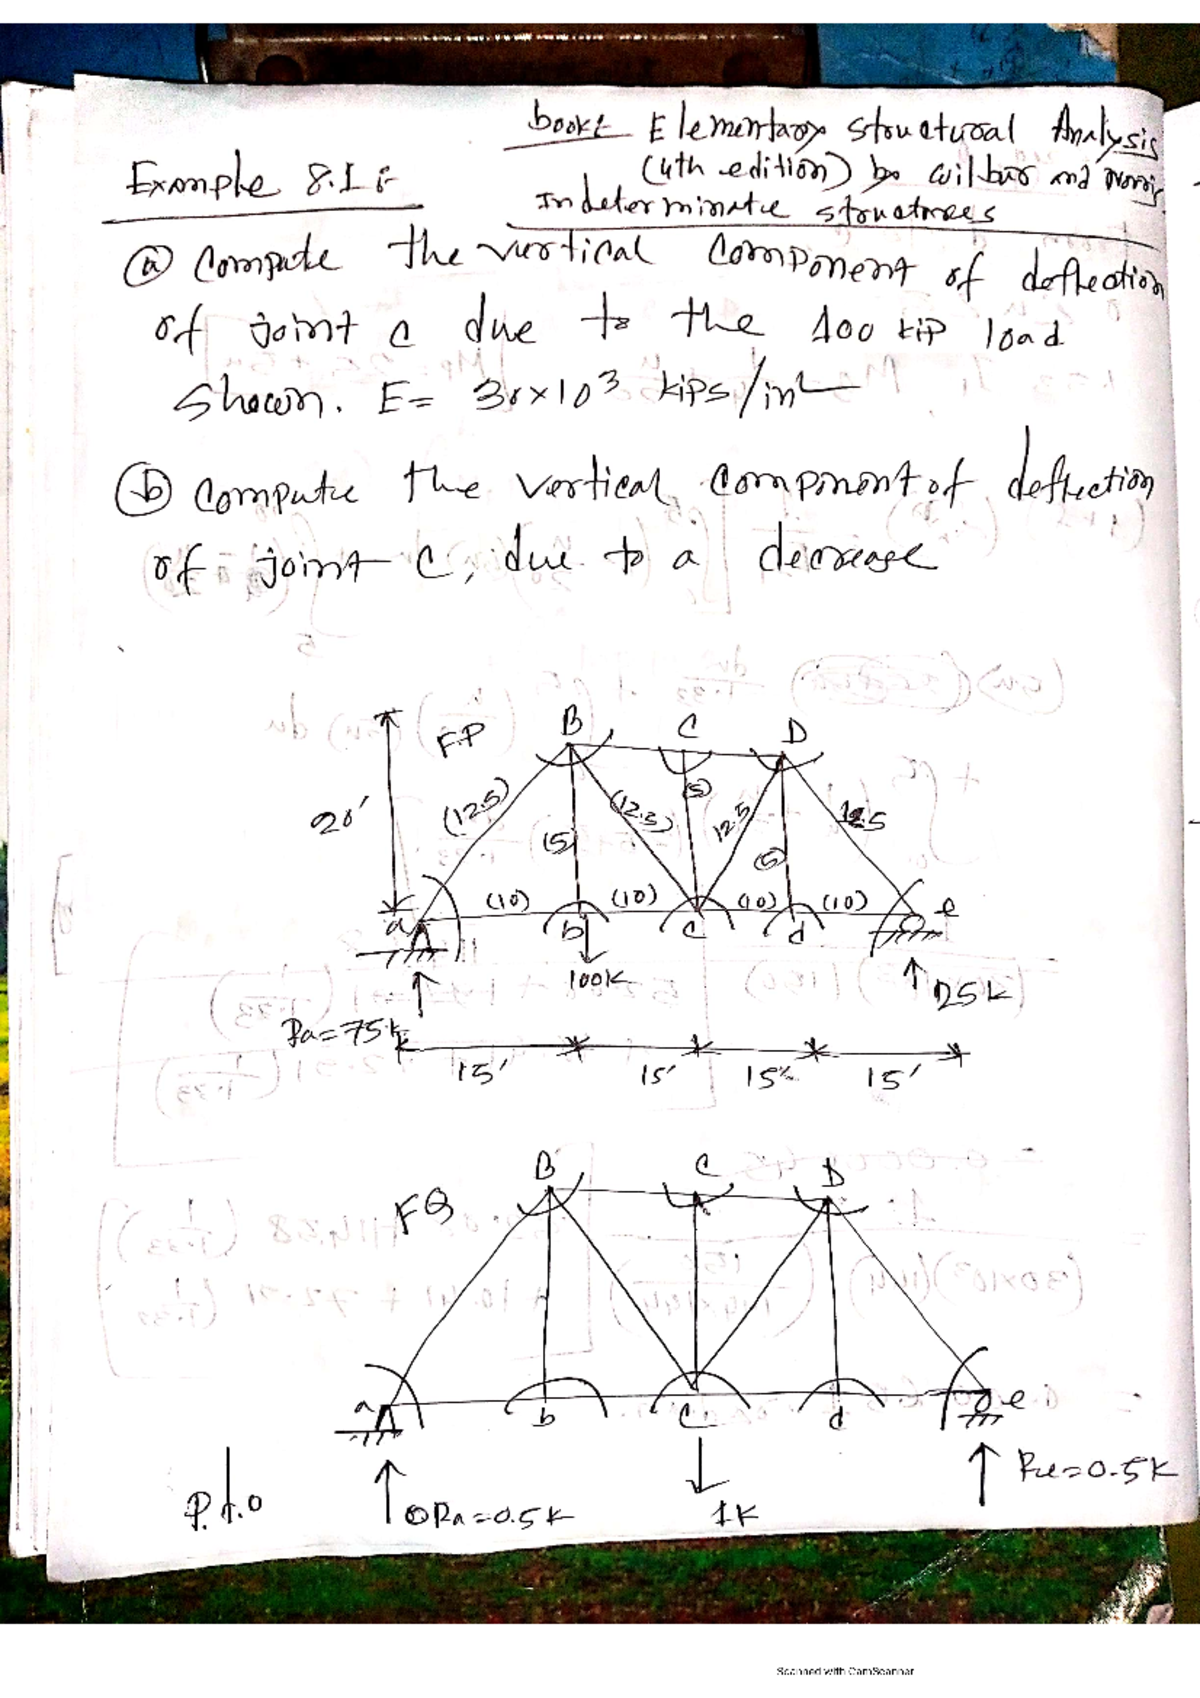 book: Elementary structural Analysis
(4th edition) by wilbur and Norris
Example 8.1 :-
Indeterminate structures
(a) Compute the vertical component of deflection
of joint c due to the 100 kip load
shown. E= 30×10³ kips/in²
(b) compute the vertical component of deflection
of joint C, due to a decrease
F.P
B C D
20'
(12.5) (5) (12.5) (5) 12.5 (5) 12.5
(10) (10) (10) (10)
a b c d e
100K
Ra=75k
25k
15' 15' 15' 15'
FQ
B C D
a b C d e
P.T.O
Ra=0.5k
1K
Re=0.5k
Scanned with CamScanner